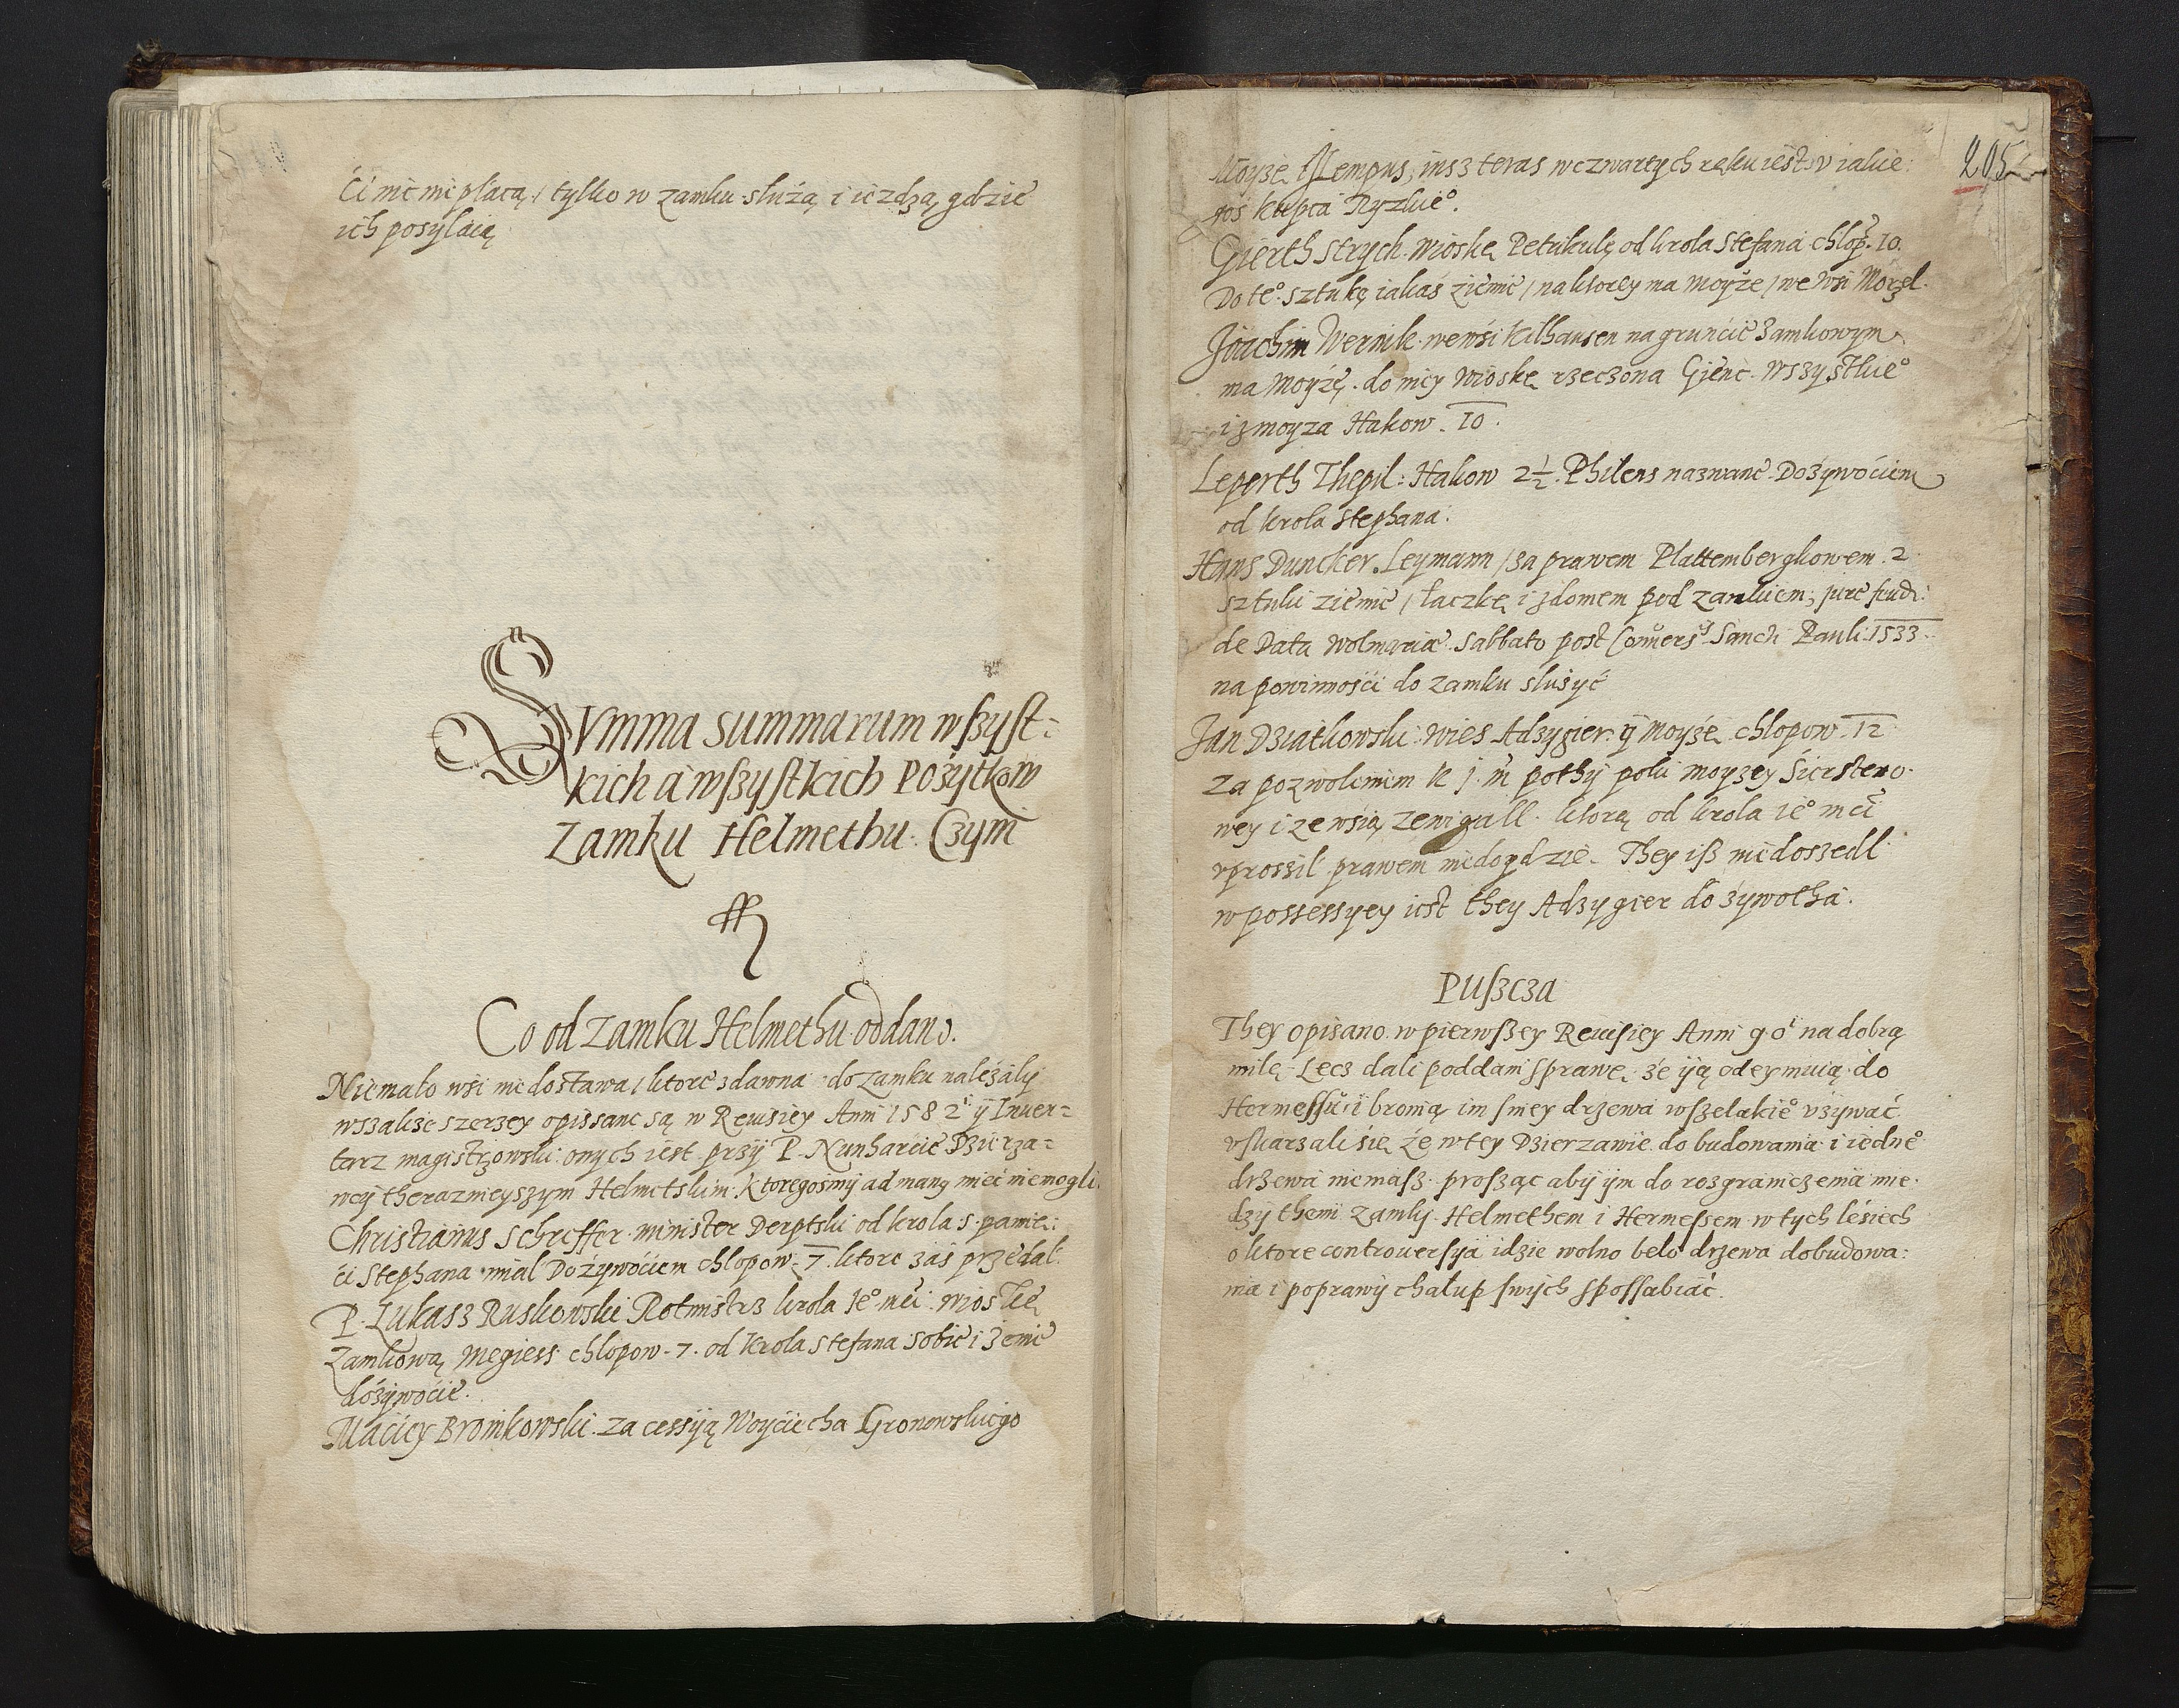 Ci nic nie płacą / tylko w zamku służą i iezdzą gdzie
ich posyłaią
Summa summarum wszyst-
kich a wszystkich Pożytkow
Zamku Helmethu. Czyni
Co od Zamku Helmethu oddano.
Niemało wsi nie dostawa / ktore zdawna do Zamku należały
wszakże szerzey opissane są w Rewisiey Anni 1582 i ÿ Inwen-
tarz magistrzowski onych iest przÿ P. Nunharcie Dzierza-
wcÿ therazneyszym Helmetskim. Ktoregosmÿ ad manꝯ mieć niemogli.
Christianus Schreffer minister Derptski od krola s. pamię:
ći Stephana miał Dożywoćiem chłopow. 7. ktore zaś przedał.
P. Lukasz Ruskowski Rotmistrz krola Ieº mći wioskę
Zamkową Megiess chłopow. 7. od krola Stefana sobie i żenie
dożywoćie.
Maćiey Bronikowski. za cessÿją Woyciecha Gronowskiego
205
Moyzę Lempus, insz teras w czwartych ręku iest v iakie:
goś kupca Ryzkieº.
Gierth Strych. wioskę Petukulę od krola Stefana chłop. 10.
Do teº. sztukę iakaś ziemie / na ktorey ma moyże / we wsi Morzel.
Joachim Wernik. we wśi Kilhausen na grunćie Zamkowym
ma Moyżę. do niey wioskę rzeczona Gienc. wszystkieº
i z moyza Hakow. 10.
Leperth Thepil: Hakow 2½. Philens nazwane. Dożywoćiem
od krola Stephana.
Hans Duncker. Leymann / za prawem Plattembergkowem. 2
sztuki ziemie / łaczkę i z domem pod zamkiem, jure feudi.
de Data Wolmariae. Sabbato post Conuers. Sancti Pauli. 1533.
na powinnośći do zamku służyć
Jan Dziatkowski. wies Adzygier. ÿ Moyżę chłopow. 12
Za pozwolenim K j. m pothÿ poki moyzey Sierstero-
wey i ze wśią Zenigall. ktorą od krola ieº mći
vprossił prawem niedoydzie. They iß nie doszedł
w possessyey iest they Adzygier do żywotha.
Puszcza
They opisano. w pierwszey Rewisiey Anni 90 i na dobrą
milę. Lecz dali poddani sprawę. że ÿją odeymuią do
Hermessu i bronią im s niey drzewa wszelakieº vżywać.
vskarzali się że w tey Dzierzawie. do budowania i iedneº
drzewa niemasz. prosząc abÿ ÿm do rozgraniczenia mie-
dzy themi zamky. Helmethem i Hermessem w tych leśiech
o ktore controuersÿa idzie wolno beło drzewa do budowa:
nia i poprawÿ chałup swych spossabiać.